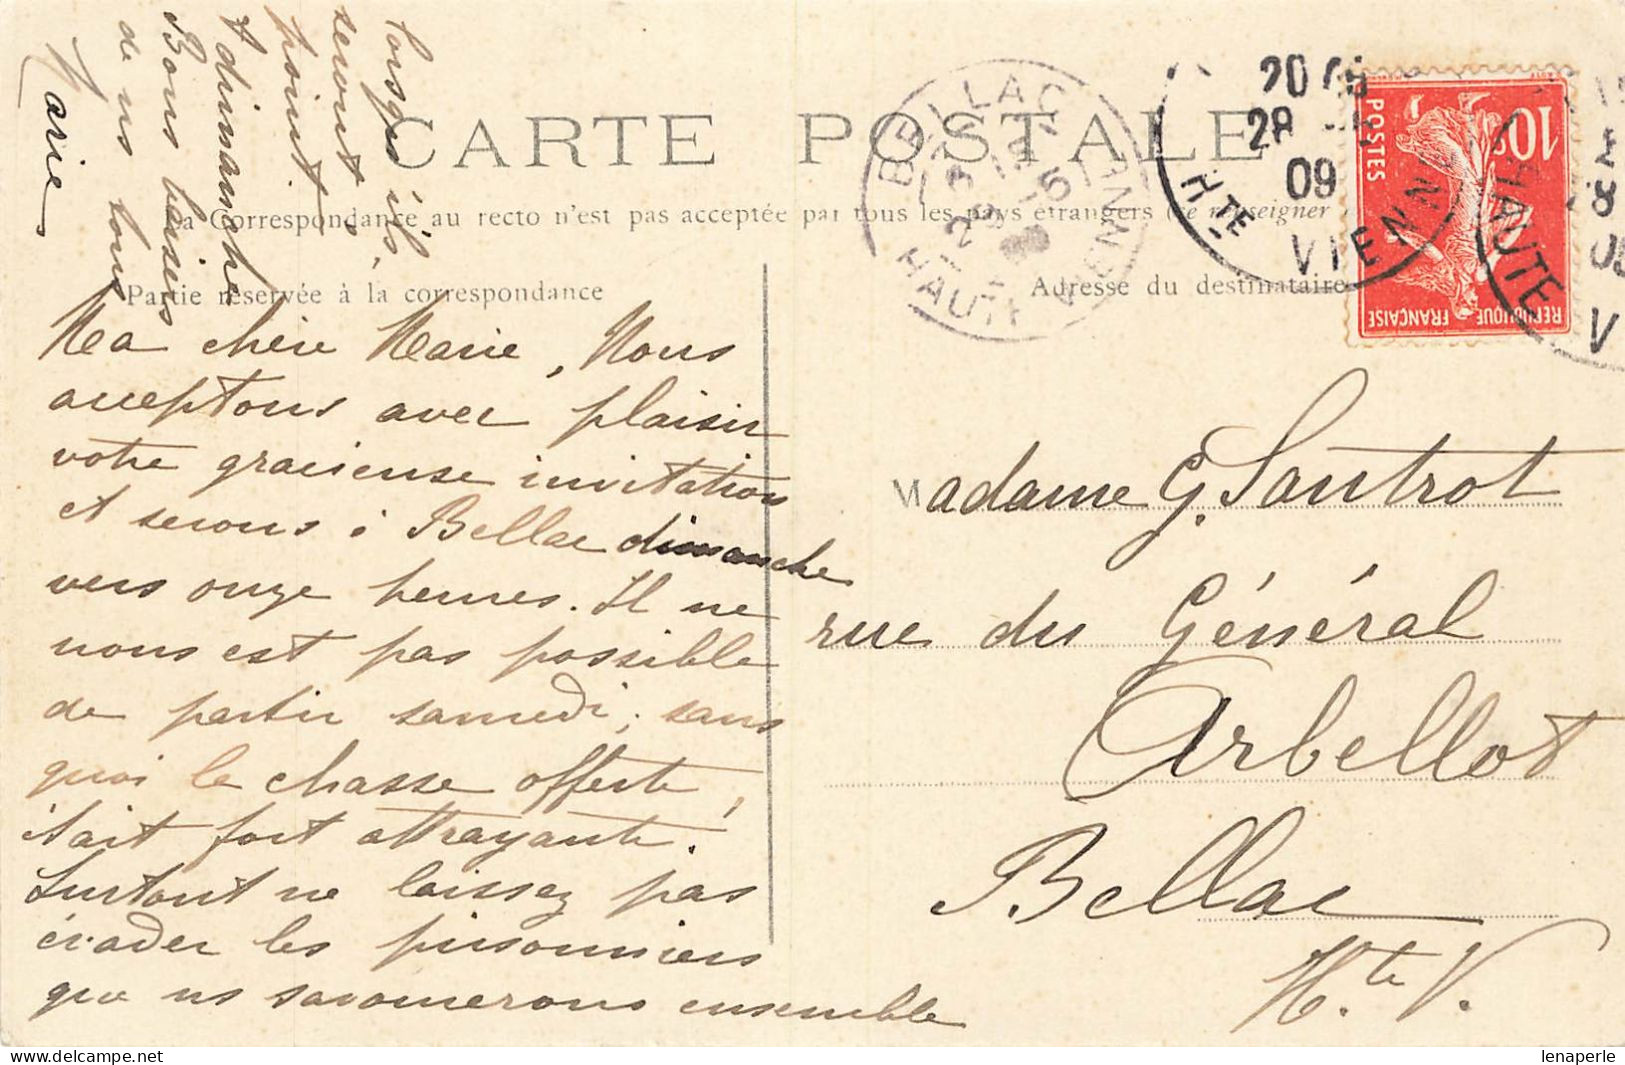 CARTE POSTALE
La Correspondance au recto n'est pas acceptée par tous les pays étrangers (Se renseigner
Partie réservée à la correspondance
Adresse du destinataire
Ma chère Marie, Nous
acceptons avec plaisir
votre gracieuse invitation
et serons à Bellac dimanche
vers onze heures. Il ne
nous est pas possible
de partir samedi, sans
quoi la chasse offerte,
était fort attrayante.
Surtout ne laissez pas
évader les prisonniers
que ns savourerons ensemble
lorsqu'ils
seront
point
A dimanche
Bons baisers
de ns tous
Marie
Madame G. Sautrot
rue du Général
Arbellot
Bellac
Hte V.
BELLAC
HAUTE VIENNE
28
09
Hte VIENNE
10c
POSTES
REPUBLIQUE FRANÇAISE
HAUTE
V
lenaperle